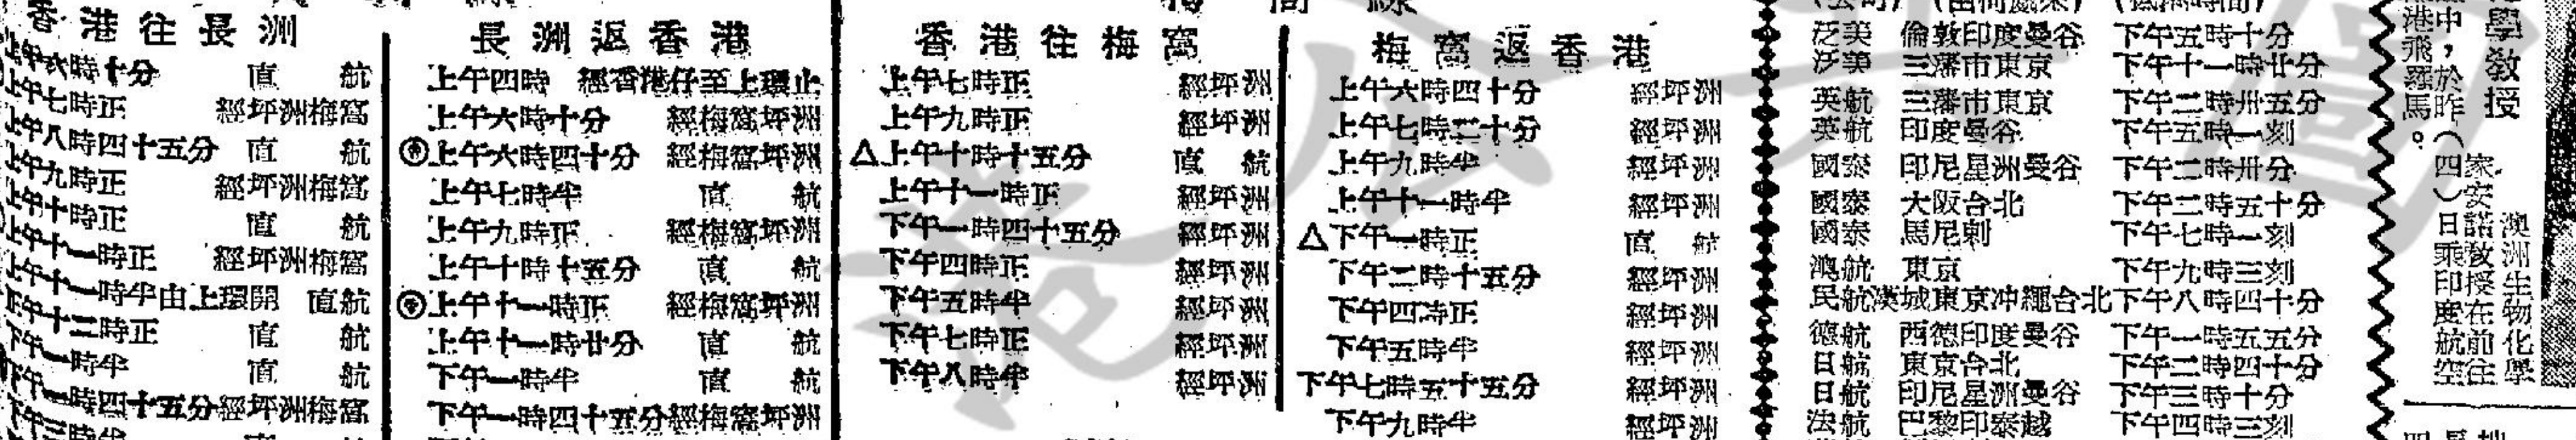 香港往長洲
上午六時十分 直航
上午七時正 經坪洲梅窩
上午八時四十五分 直航
上午九時正 經坪洲梅窩
上午十時正 直航
上午十一時正 經坪洲梅窩
上午十一時半由上環開 直航
下午十二時正 直航
下午一時半 直航
下午一時四十五分經坪洲梅窩
長洲返香港
上午四時 經香港仔至上環止
上午六時十分 經梅窩坪洲
上午六時四十分 經梅窩坪洲
上午七時半 直航
上午九時正 經梅窩坪洲
上午十時十五分 直航
上午十一時正 經梅窩坪洲
上午十一時廿分 直航
下午一時半 直航
下午一時四十五分經梅窩坪洲
香港往梅窩
上午七時正 經坪洲
上午九時正 經坪洲
△上午十時十五分 直航
上午十一時正 經坪洲
下午一時四十五分 經坪洲
下午四時正 經坪洲
下午五時半 經坪洲
下午七時正 經坪洲
下午八時半 經坪洲
梅窩返香港
上午六時四十分 經坪洲
上午七時二十分 經坪洲
上午九時半 經坪洲
上午十一時半 經坪洲
△下午一時正 直航
下午二時十五分 經坪洲
下午四時正 經坪洲
下午五時半 經坪洲
下午七時五十五分 經坪洲
下午九時半 經坪洲
泛美 倫敦印度曼谷 下午五時十分
泛美 三藩市東京 下午十一時廿分
英航 三藩市東京 下午二時卅五分
英航 印度曼谷 下午五時一刻
國泰 印尼星洲曼谷 下午二時卅分
國泰 大阪台北 下午二時五十分
國泰 馬尼剌 下午七時一刻
鴻航 東京 下午九時三刻
民航漢城東京冲繩台北下午八時四十分
德航 西德印度曼谷 下午一時五五分
日航 東京台北 下午二時四十分
日航 印尼星洲曼谷 下午三時十分
法航 巴黎印泰越 下午四時三刻
學教授
澳洲生物化學
家安諾教授在前往
中，於昨（四）日乘印度航空
港飛羅馬。